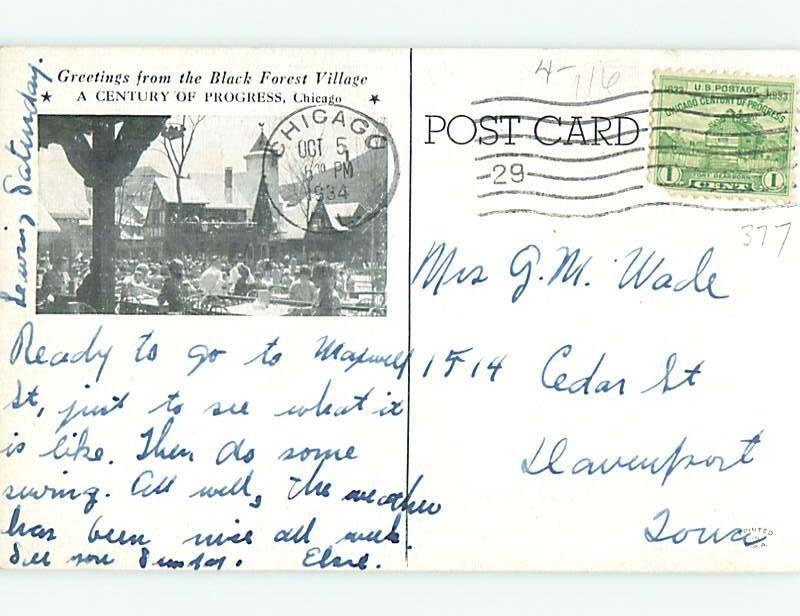 Greetings from the Black Forest Village
★ A CENTURY OF PROGRESS, Chicago ★
CHICAGO
OCT 5
6 30 PM
1934
ILL.
29
4- 116
U.S. POSTAGE
1833 1933
CHICAGO CENTURY OF PROGRESS
FORT DEARBORN
1 CENT 1
377
POST CARD
Mrs G. M. Wade
1514 Cedar St
Davenport
Iowa
PRINTED
Ready to go to Maxwell
St, just to see what it
is like. Then do some
sewing. All well, The weather
has been nice all week.
See you Sunday. Elsie.
Leaving Saturday.